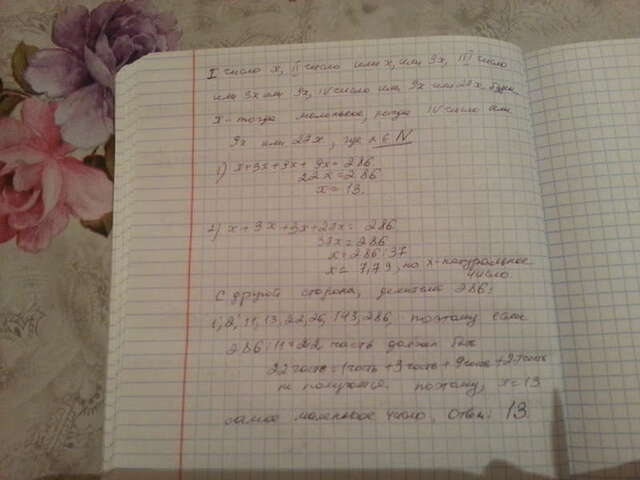 I число x, II число или x, или 3x, III число
или 3x или 9x, IV число или 9x или 27x.
x - тогда маленькое, когда IV число или
9x или 27x, где x ∈ N
1) x+3x+9x+9x=286
22x=286
x=13.
2) x+3x+3x+27x=286
x=286:37
x=7,73, но x-натуральное
число.
С другой стороны, делители 286:
1, 2, 11, 13, 22, 26, 143, 286 поэтому если
286:11= часть должна быть
22 часть=1часть+3часть+9часть+
не получится. поэтому, x=13
самое маленькое число. Ответ: 13.